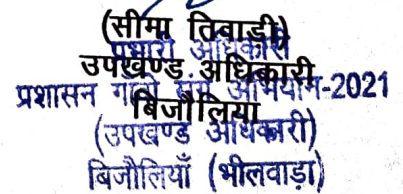 (सीमा तिवाडी)
प्रभारी अधिकारी
उपखण्ड अधिकारी
प्रशासन गांवों संग अभियान-2021
बिजौलिया
(उपखण्ड अधिकारी)
बिजौलियाँ (भीलवाडा)